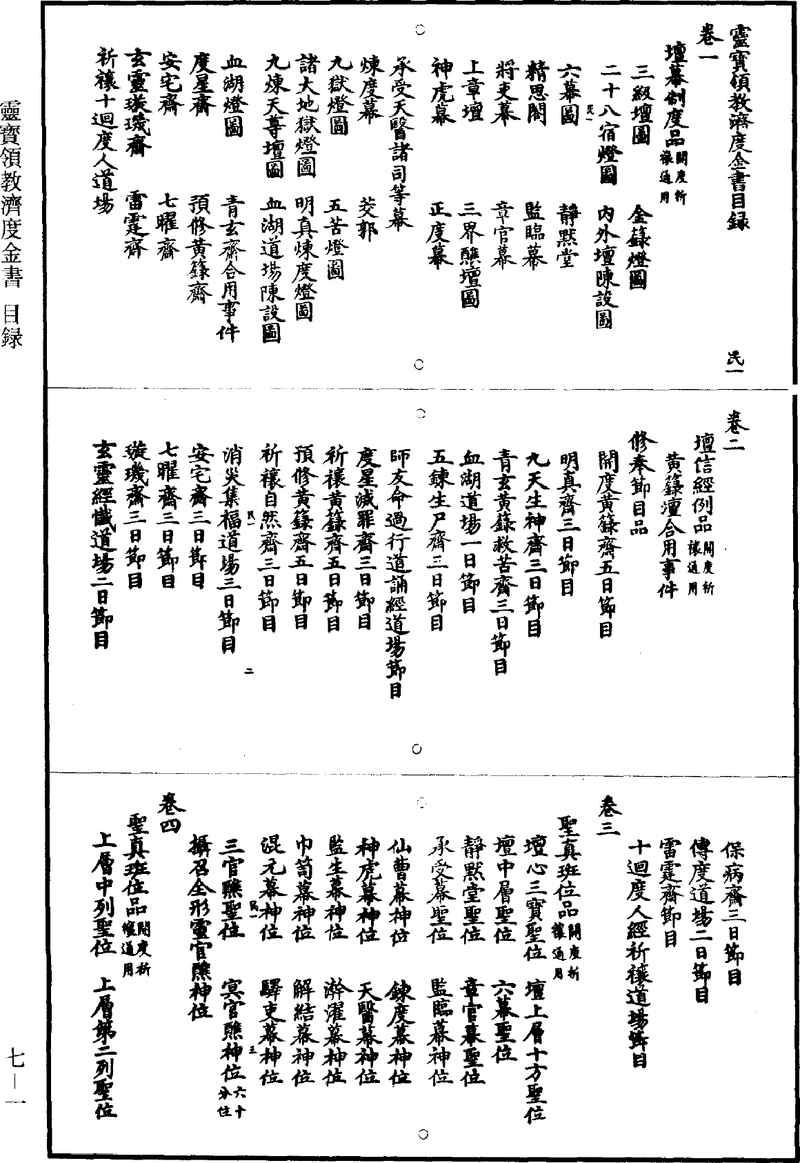 靈寶領教濟度金書目録　民一
卷一
壇幕制度品 開度祈禳通用
三級壇圖　金籙燈圖
二十八宿燈圖　內外壇陳設圖
民一
六幕圖　靜黙堂
精思閣　監臨幕
將吏幕　章官幕
上章壇　三界醮壇圖
神虎幕　正度幕
承受天醫諸司等幕
煉度幕　茭郭
九獄燈圖　五苦燈圖
諸大地獄燈圖　明真煉度燈圖
九煉天尊壇圖　血湖道場陳設圖
血湖燈圖　青玄齋合用事件
度星齋　預修黃籙齋
安宅齋　七曜齋
玄靈璇璣齋　雷霆齋
祈禳十迴度人道場
卷二
壇信經例品 開度祈禳通用
黃籙壇合用事件
修奉節目品
開度黃籙齋五日節目
明真齋三日節目
九天生神齋三日節目
青玄黃籙救苦齋三日節目
血湖道場一日節目
五鍊生尸齋三日節目
師友命過行道誦經道場節目
度星滅罪齋三日節目
祈禳黃籙齋五日節目
預修黃籙齋五日節目
祈禳自然齋三日節目
民一
消災集福道場三日節目
二
安宅齋三日節目
七曜齋三日節目
璇璣齋三日節目
玄靈經懺道場二日節目
保病齋三日節目
傳度道場二日節目
雷霆齋節目
十迴度人經祈禳道場節目
卷三
聖真班位品 開度祈禳通用
壇心三寶聖位　壇上層十方聖位
壇中層聖位　六幕聖位
靜黙堂聖位　章官幕聖位
承受幕聖位　監臨幕神位
仙曹幕神位　鍊度幕神位
神虎幕神位　天醫幕神位
監生幕神位　澣濯幕神位
巾笥幕神位　解結幕神位
混元幕神位　驛吏幕神位
民一
三官醮聖位　冥官醮神位 六十分位
三
攝召全形靈官醮神位
卷四
聖真班位品 開度祈禳通用
上層中列聖位　上層第二列聖位
靈寶領教濟度金書　目録
七—一